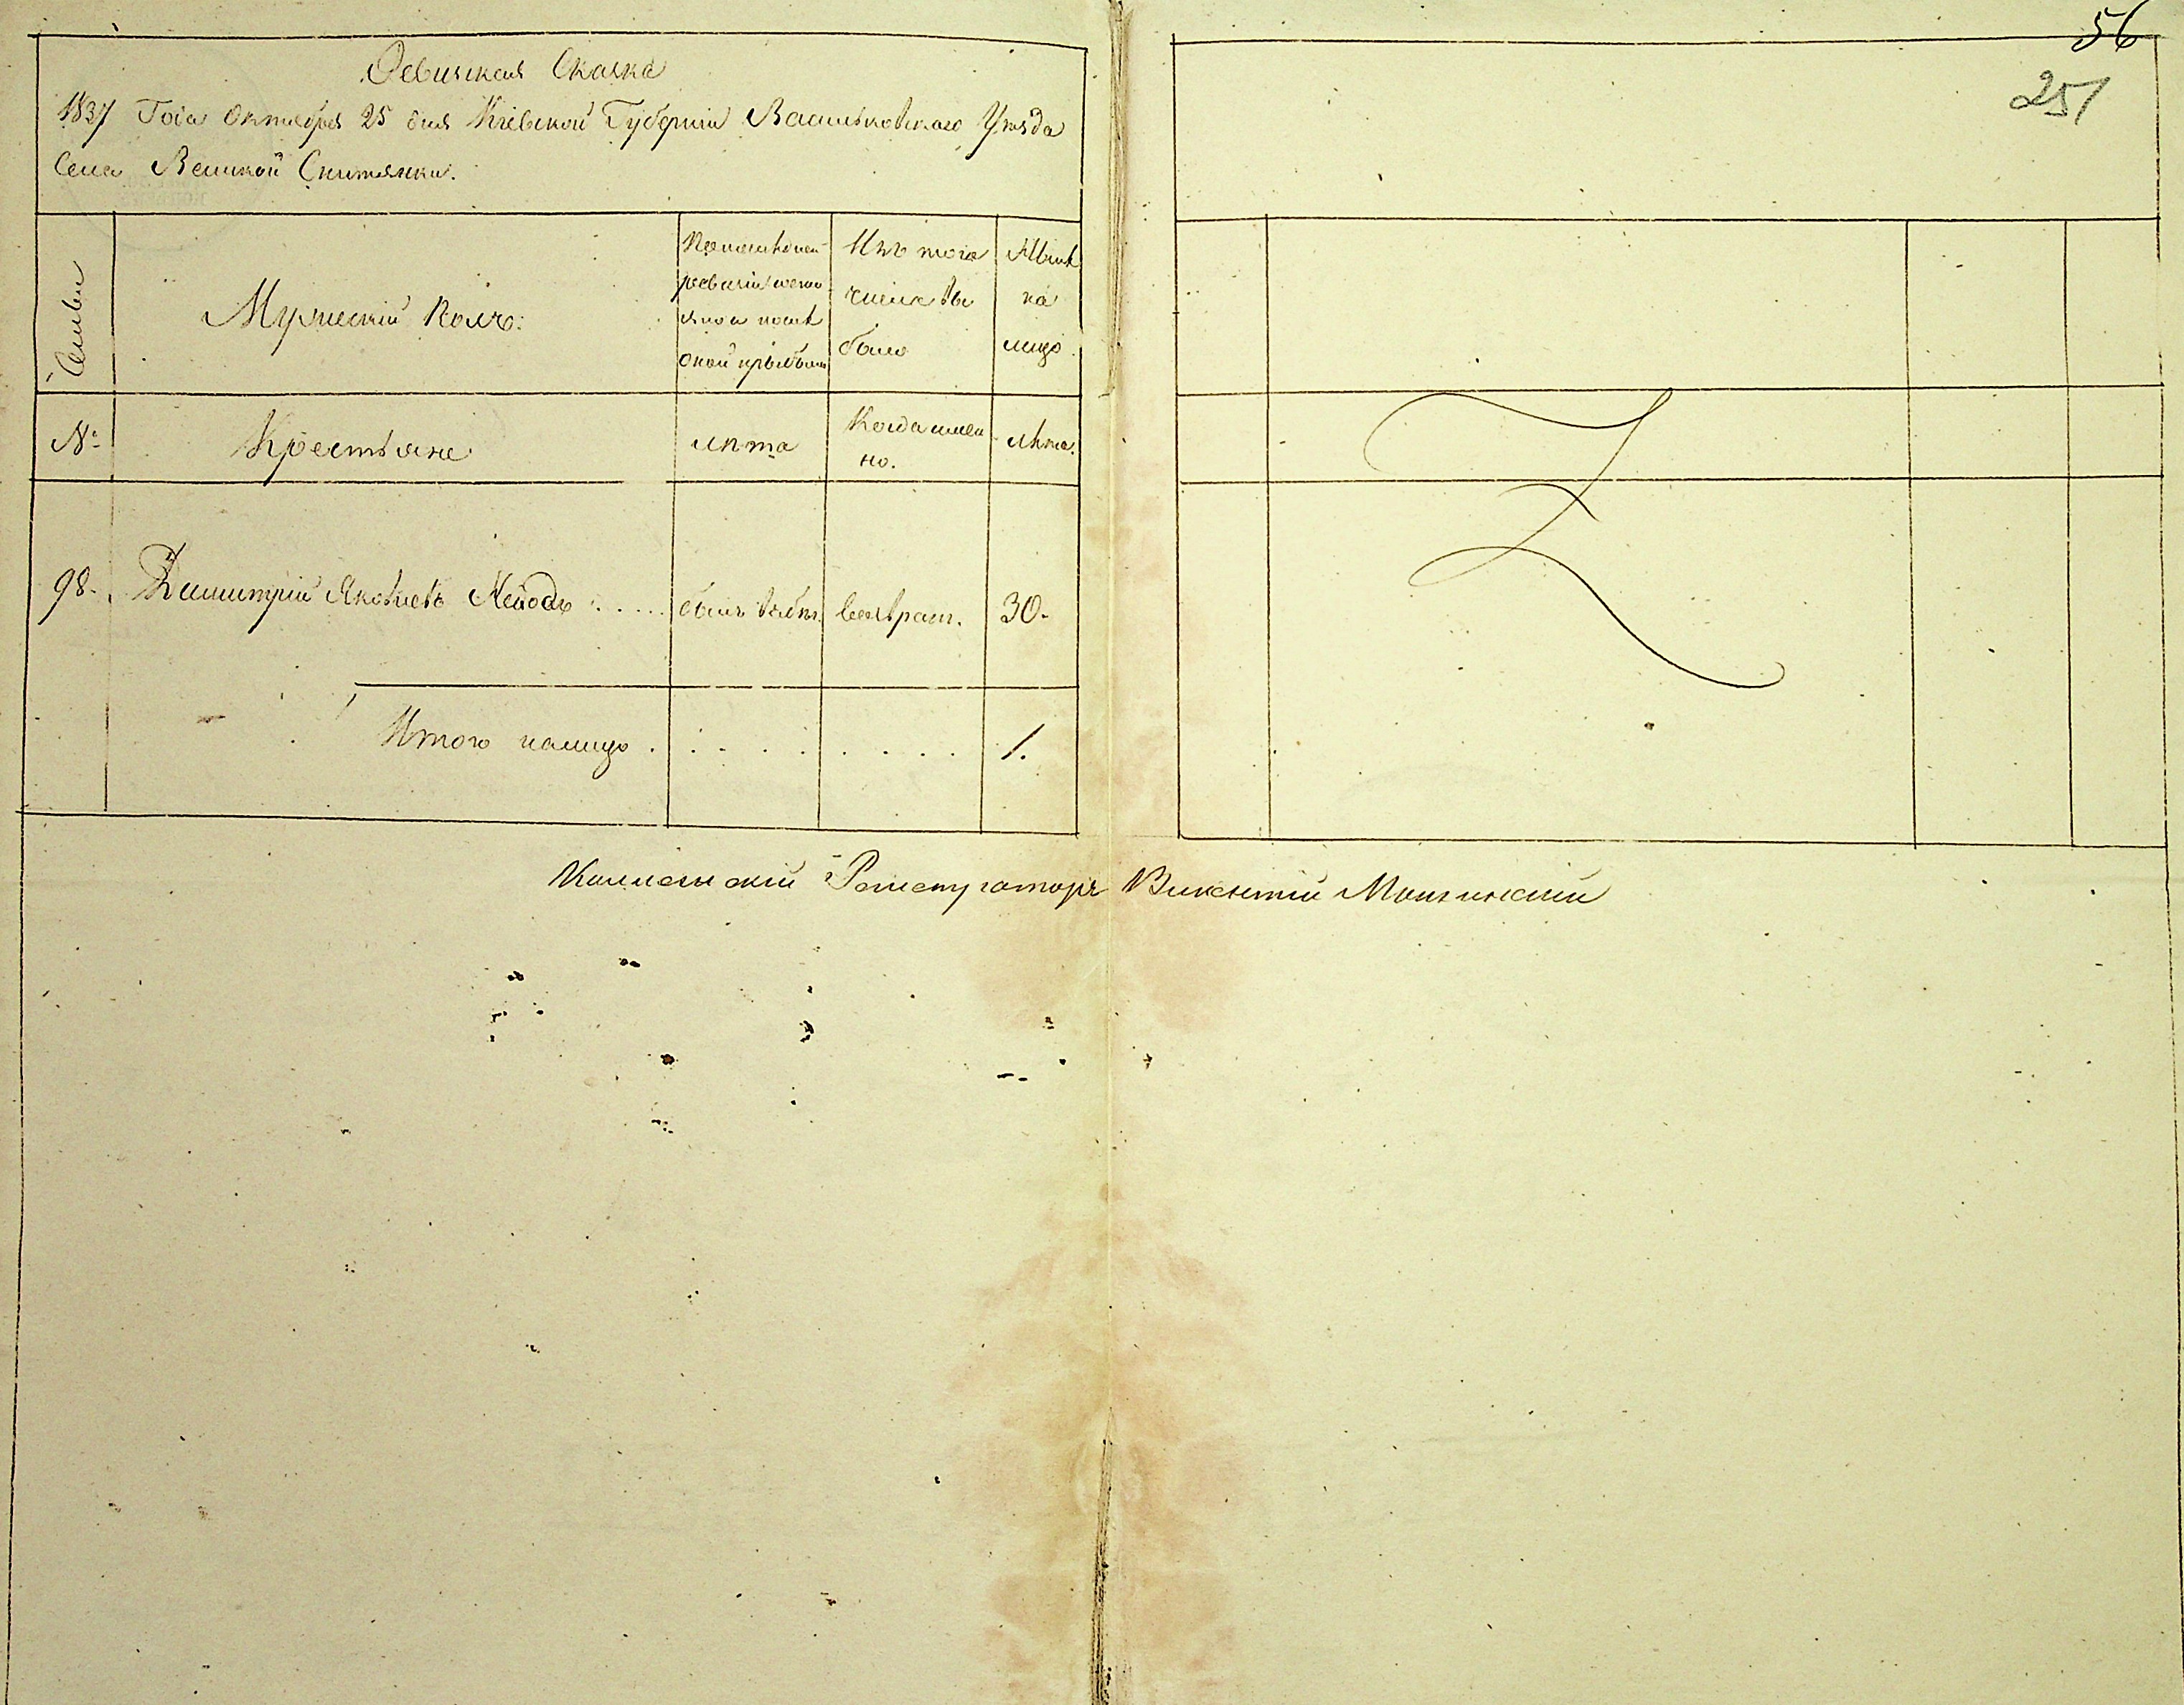 56
251
Ревизская Сказка
1837 Года Октября 25 дня Кіевской Губерніи Васильковскаго Уѣзда
Села Великой Снитянки.
Семьи
Мужескій Полъ.
По последней
ревизіи состояло и послѣ
оной прибыло
Изъ того
числа вы
было
Нынѣ
на
лицо
№
Крестьяне
лѣта
Когда имен
но.
лѣта.
98. Димитрій Яковлевъ ..... былъ въ возврат. 30.
Итого налицо . . . . . . . . 1.
Коллежскій Регистраторъ Викентій